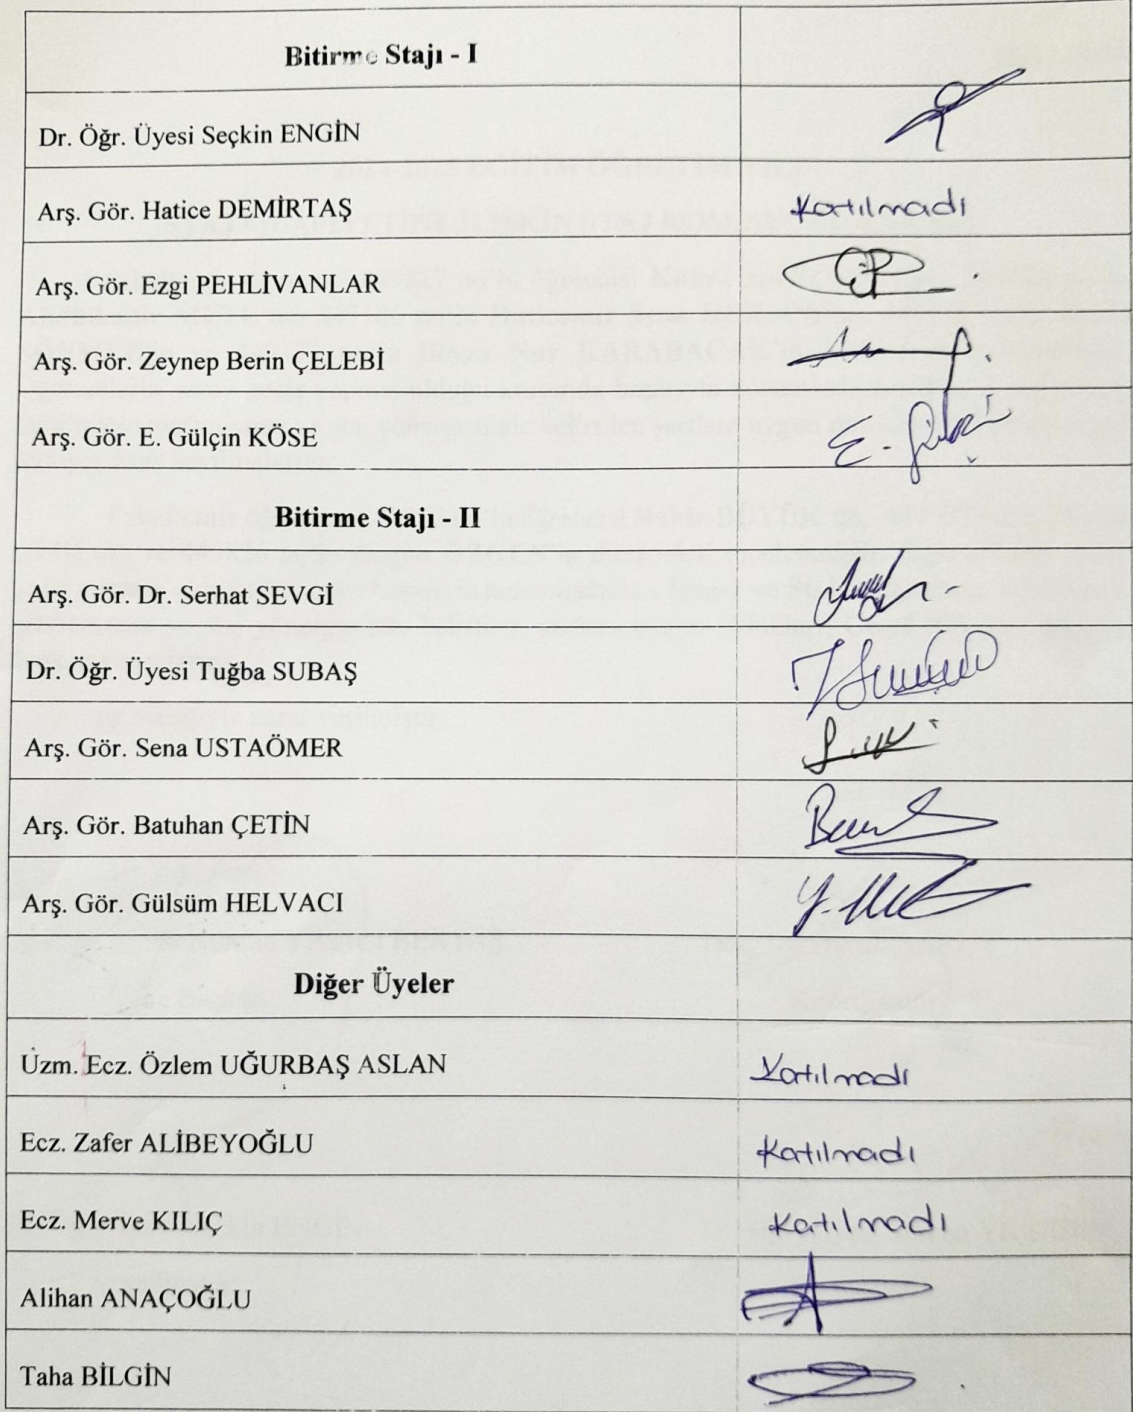 Bitirme Stajı - I
Dr. Öğr. Üyesi Seçkin ENGİN
Arş. Gör. Hatice DEMİRTAŞ Katılmadı
Arş. Gör. Ezgi PEHLİVANLAR
Arş. Gör. Zeynep Berin ÇELEBİ
Arş. Gör. E. Gülçin KÖSE
Bitirme Stajı - II
Arş. Gör. Dr. Serhat SEVGİ
Dr. Öğr. Üyesi Tuğba SUBAŞ
Arş. Gör. Sena USTAÖMER
Arş. Gör. Batuhan ÇETİN
Arş. Gör. Gülsüm HELVACI
Diğer Üyeler
Uzm. Ecz. Özlem UĞURBAŞ ASLAN Katılmadı
Ecz. Zafer ALİBEYOĞLU Katılmadı
Ecz. Merve KILIÇ Katılmadı
Alihan ANAÇOĞLU
Taha BİLGİN